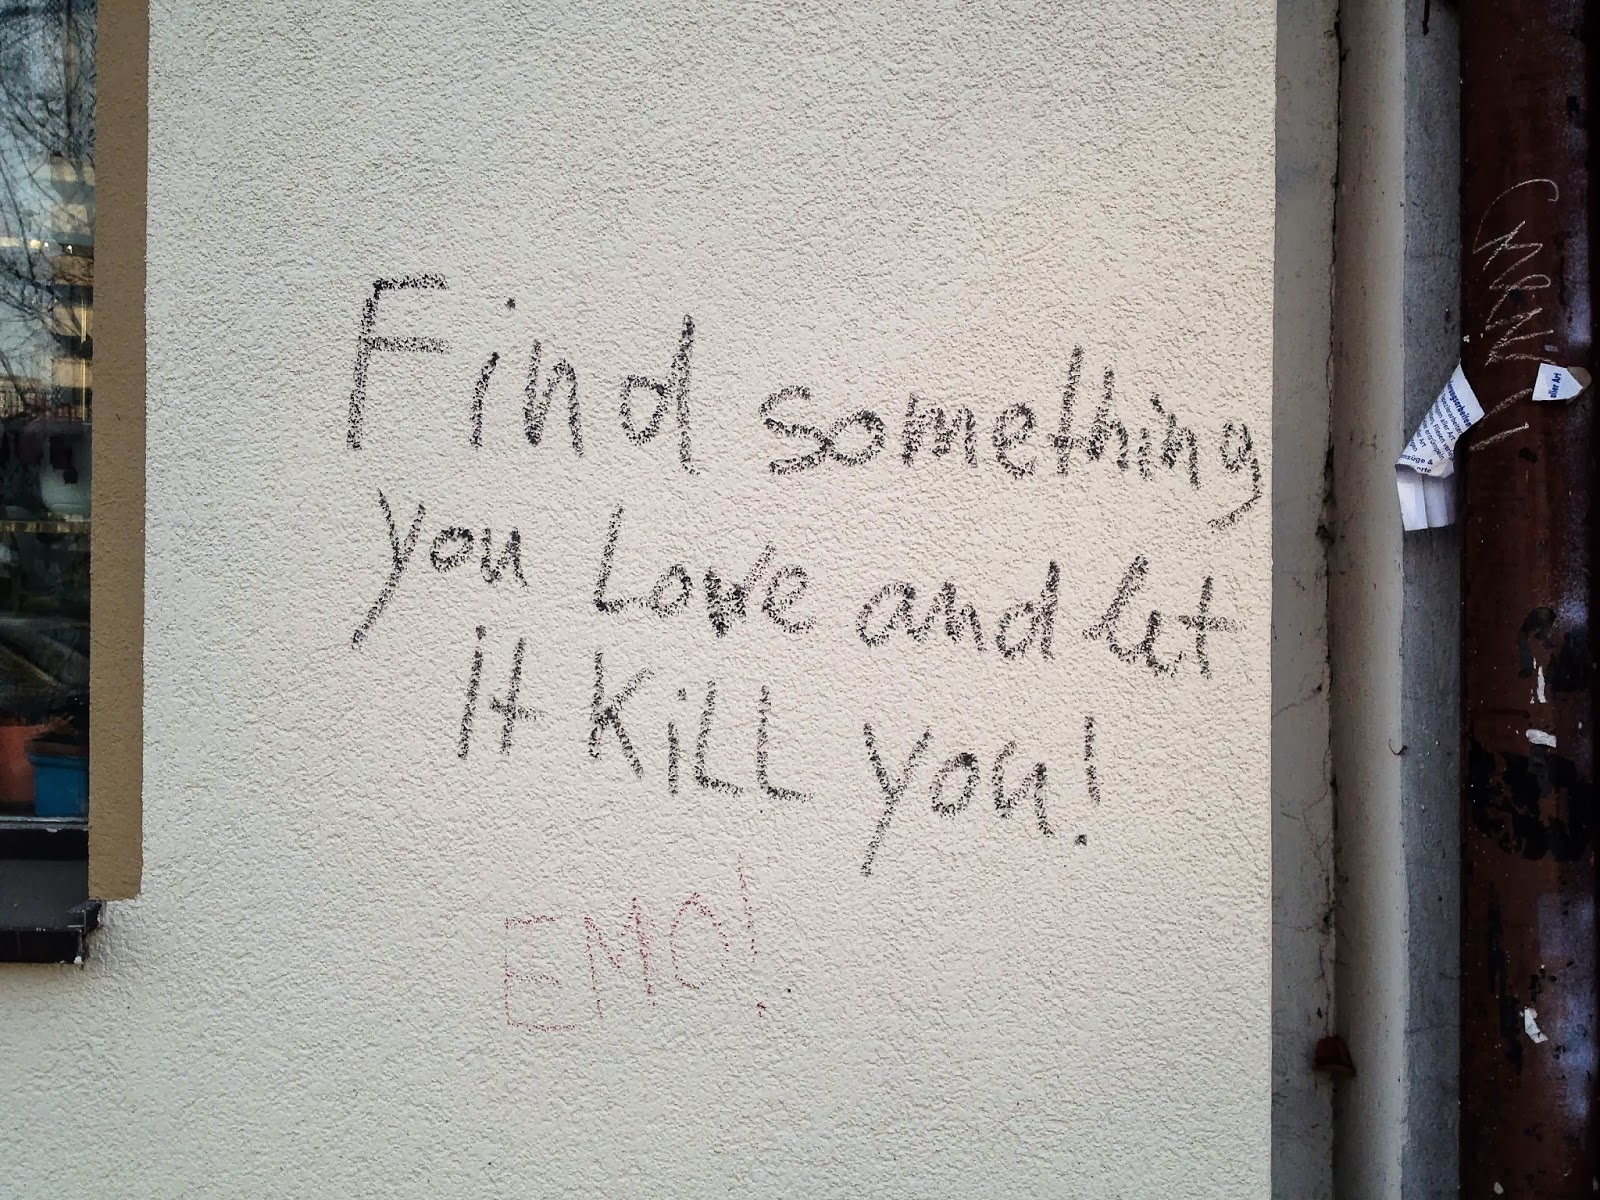 Find something
you Love and let
it KiLL you!
EMO!
aller Art